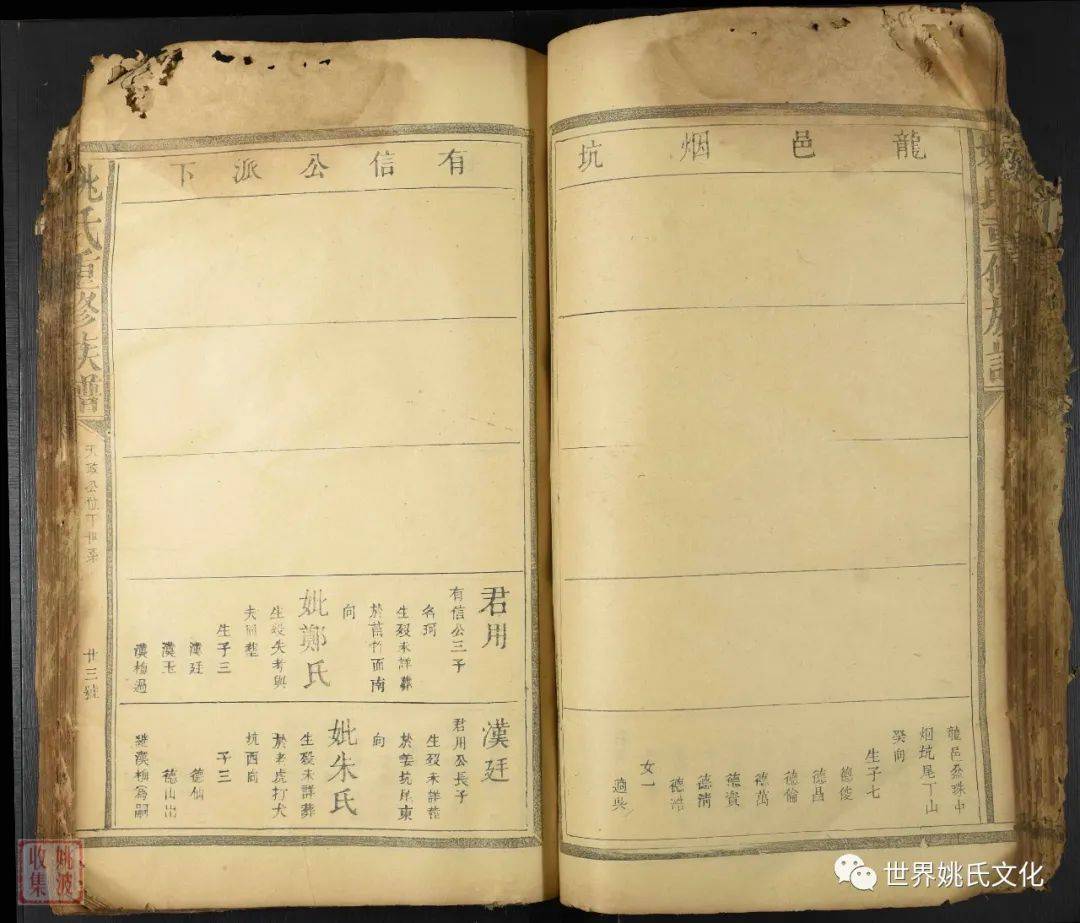 姚氏重修族譜
龍邑烟坑
烟坑尾丁山
癸向
生子七
德俊
德昌
德倫
德萬
德清
德浩
女一
適吳
有信公派下
君用
有信公三子
名珂
生歿未詳葬
面南
向
妣鄭氏
生歿失考與
夫同塋
生子三
漢廷
漢玉
漢梅過
漢廷
君用公長子
生歿未詳葬
於姜坑尾東
向
妣朱氏
生歿未詳葬
於老虎打犬
坑西向
子三
德仙
德山出
繼漢梅為嗣
姚氏重修族譜
公位下世系
廿三號
姚波
收集
世界姚氏文化